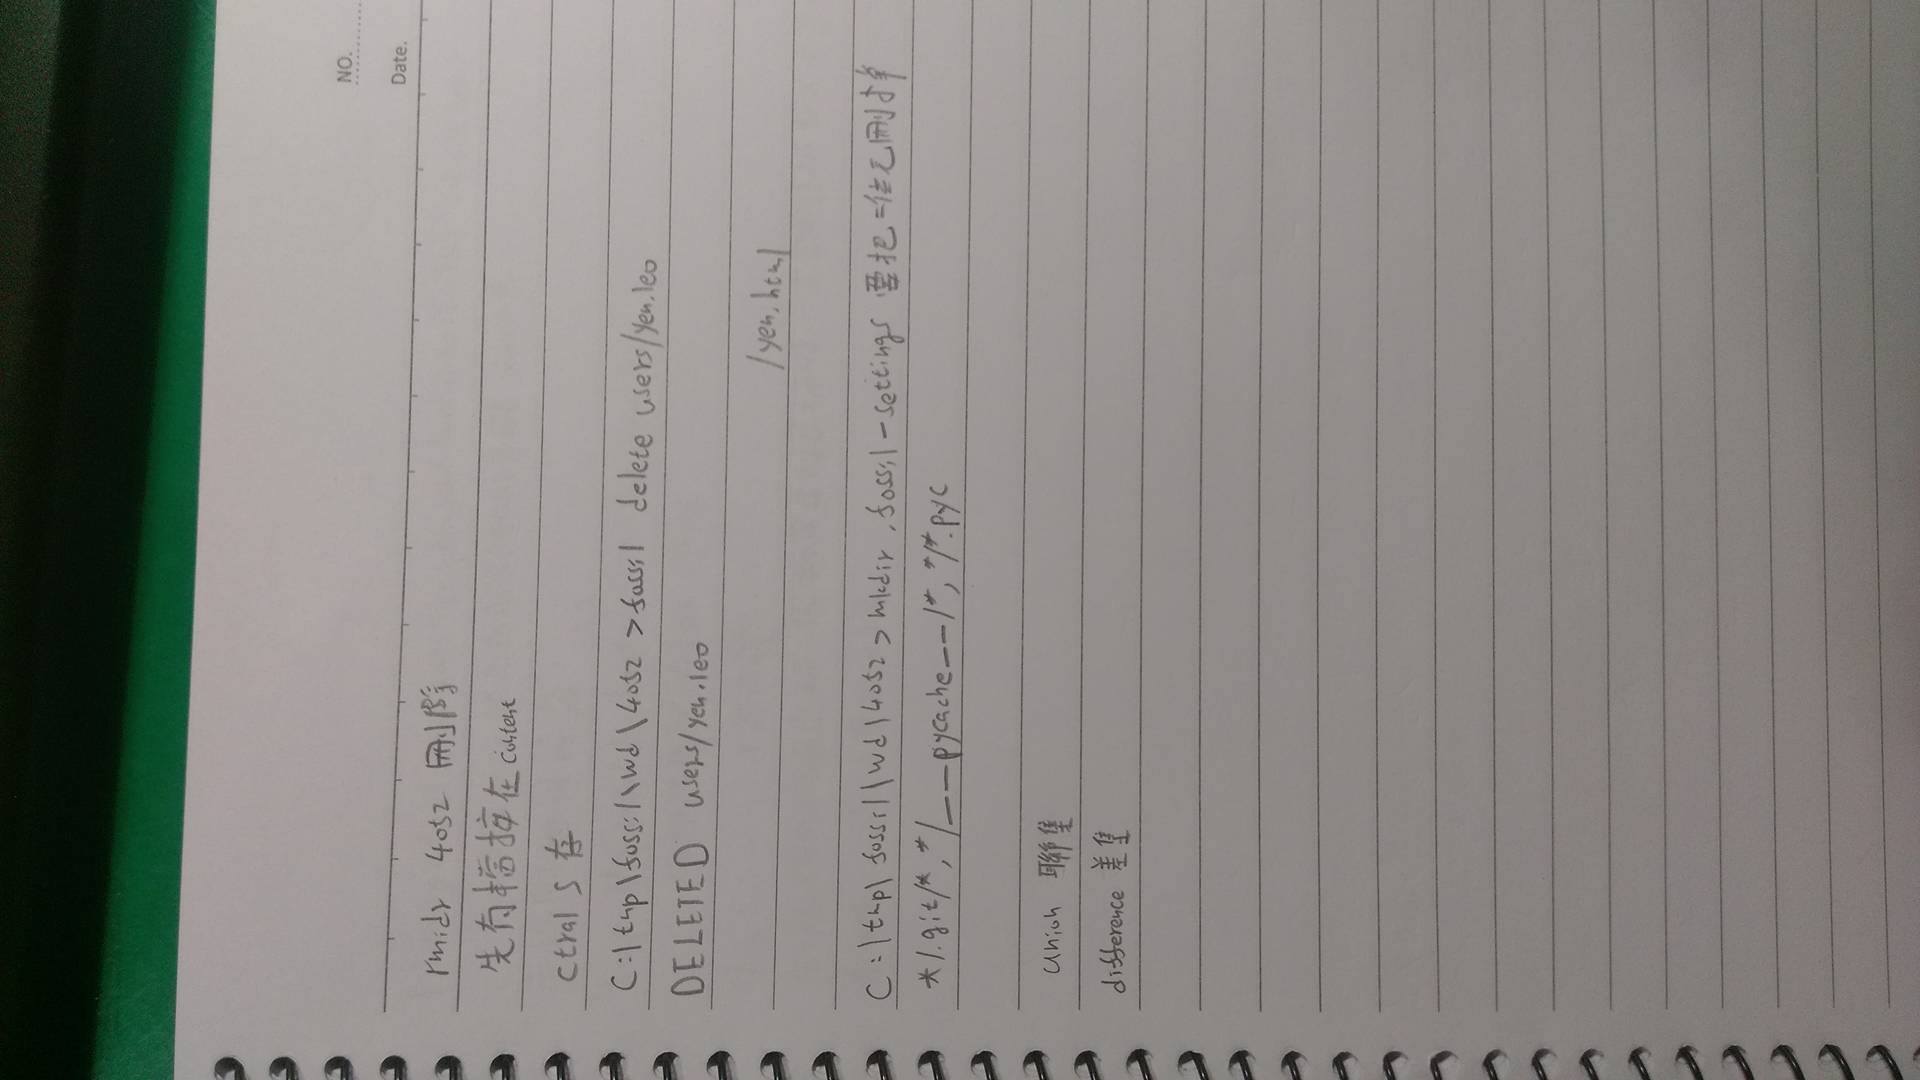 NO.
Date.
rmidr 40s2 刪除
先有檔擋在 content
ctral S 存
C:\tmp\fossil\wd\40s2 > fossil delete users/yen.leo
DELETED users/yen.leo
/yen.html
C:\tmp\fossil\wd\40s2 > mkdir .fossil-settings 要把
*/.git/*, */__pycache__/*, */*.pyc
union 聯集
difference 差集